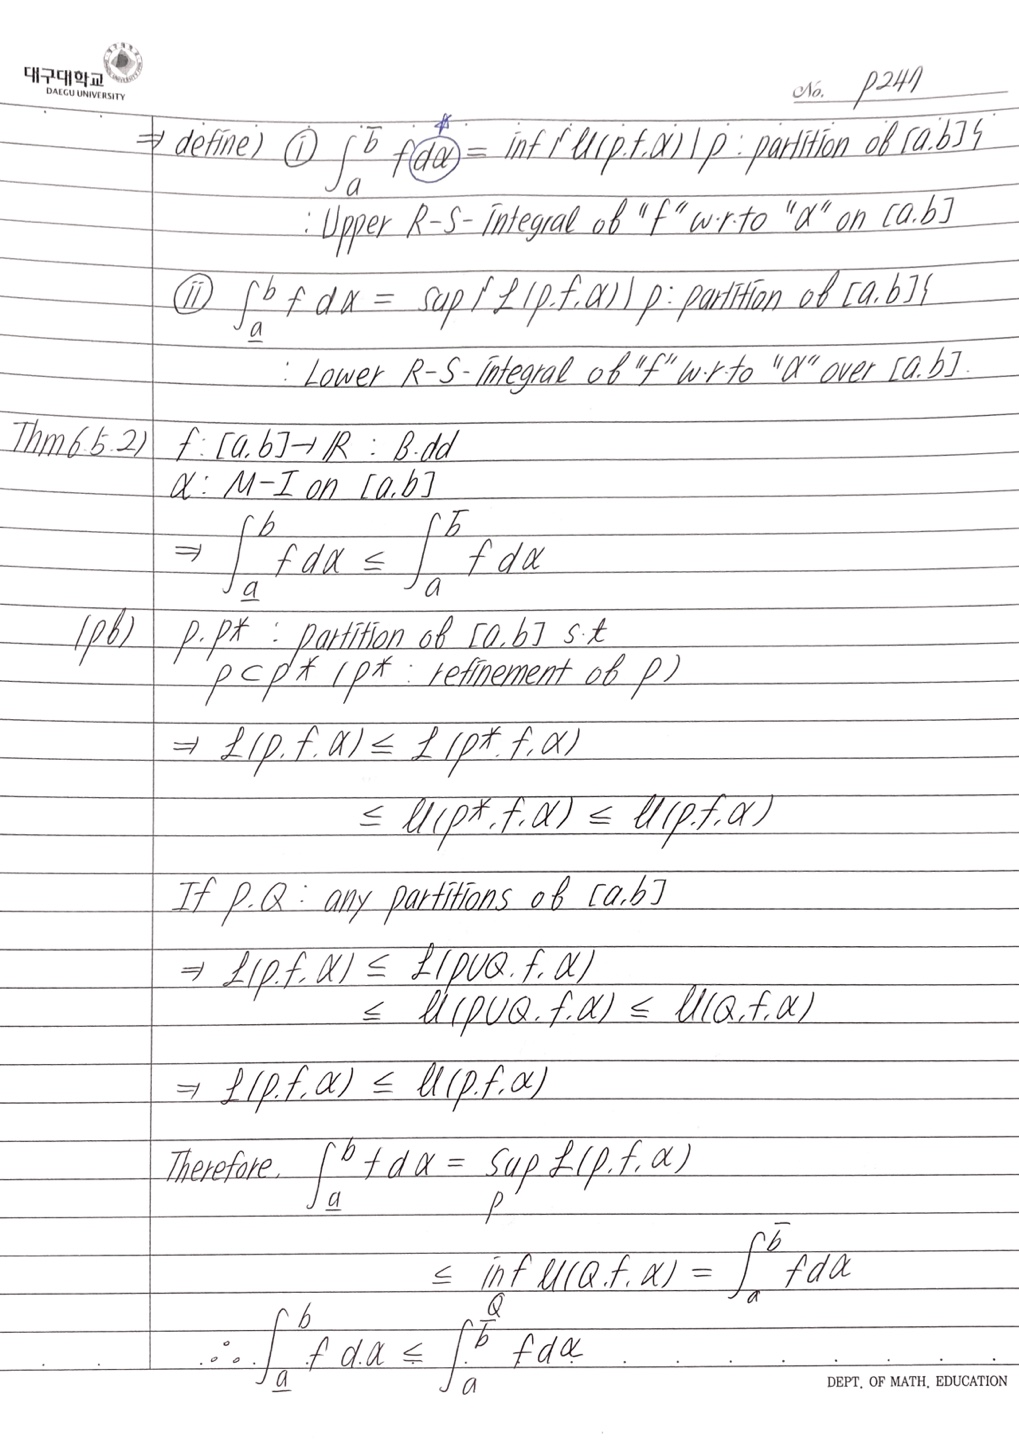 대구대학교
DAEGU UNIVERSITY
No. p247
⇒ define) ⓘ ∫_a^b̅ f dα = inf{ U(p.f.α) | p : partition of [a.b]}
: Upper R-S-Integral of "f" w.r.to "α" on [a.b]
ⓘⓘ ∫_a̲^b f dα = sup{ L(p.f.α) | p : partition of [a.b]}
: Lower R-S-Integral of "f" w.r.to "α" over [a.b].
Thm6.5.2) f : [a.b] → ℝ : B.dd
α : M-I on [a.b]
⇒ ∫_a̲^b f dα ≤ ∫_a^b̅ f dα
(pf) p.p* : partition of [a.b] s.t
p⊂p* (p* : refinement of p)
⇒ L(p.f.α) ≤ L(p*.f.α)
≤ U(p*.f.α) ≤ U(p.f.α)
If p.Q : any partitions of [a.b]
⇒ L(p.f.α) ≤ L(p∪Q.f.α)
≤ U(p∪Q.f.α) ≤ U(Q.f.α)
⇒ L(p.f.α) ≤ U(p.f.α)
Therefore. ∫_a̲^b f dα = sup_p L(p.f.α)
≤ inf_Q U(Q.f.α) = ∫_a^b̅ f dα
∴ ∫_a̲^b f dα ≤ ∫_a^b̅ f dα
DEPT. OF MATH. EDUCATION